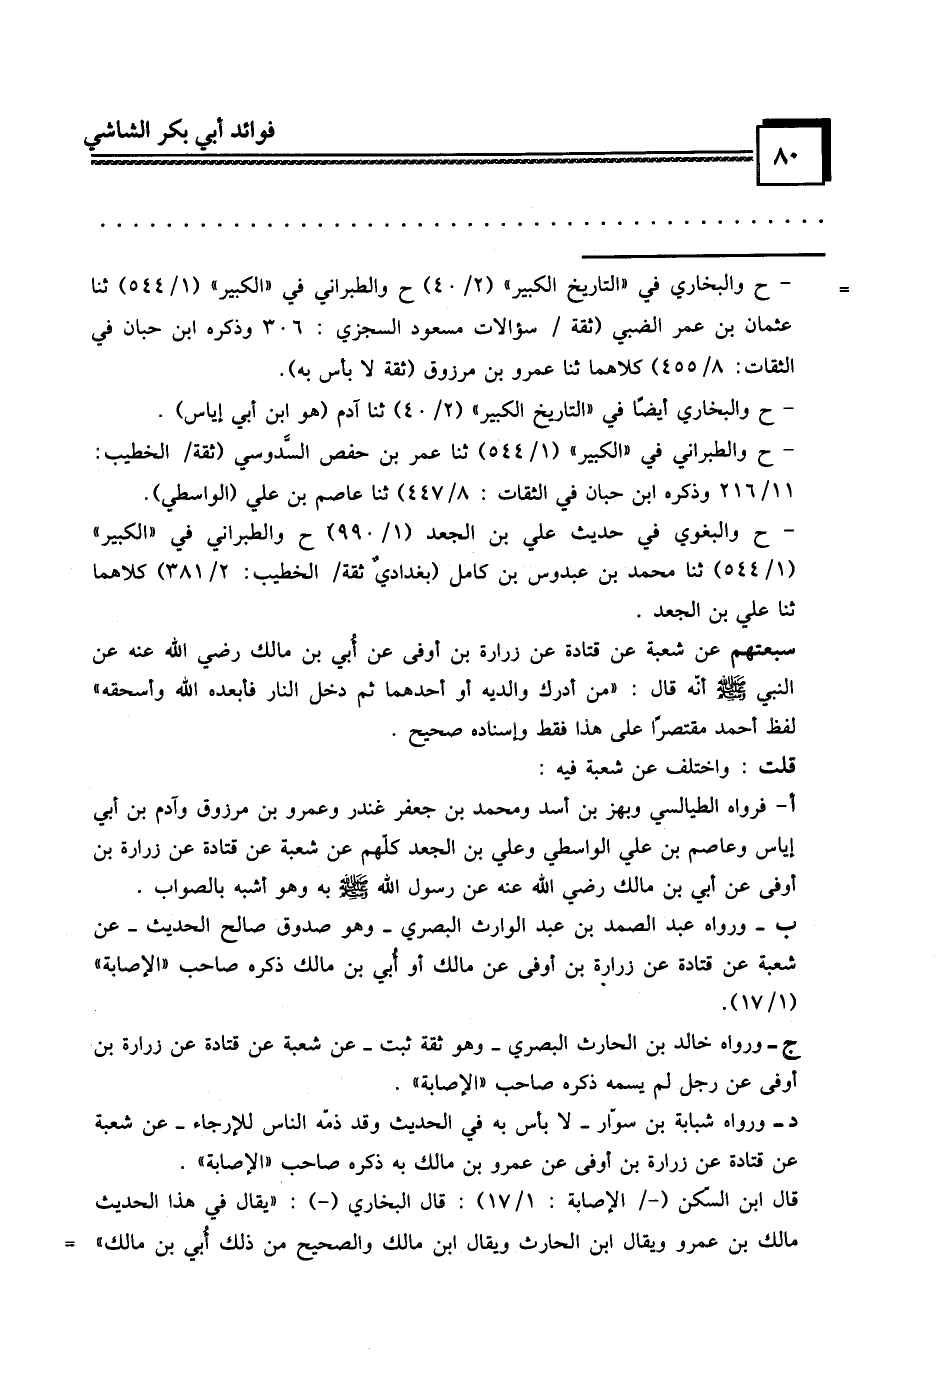 فوائد أبي بكر الشاشي
٨٠
. . . . . . . . . . . . . . . . . . . . . . . . . . . . . . . . . . .
= - ح والبخاري في «التاريخ الكبير» (٤٠/٢) ح والطبراني في «الكبير» (٥٤٤/١) ثنا
عثمان بن عمر الضبي (ثقة / سؤالات مسعود السجزي : ٣٠٦ وذكره ابن حبان في
الثقات: ٤٥٥/٨) كلاهما ثنا عمرو بن مرزوق (ثقة لا بأس به).
- ح والبخاري أيضًا في «التاريخ الكبير» (٤٠/٢) ثنا آدم (هو ابن أبي إياس) .
- ح والطبراني في «الكبير» (٥٤٤/١) ثنا عمر بن حفص السَّدوسي (ثقة/ الخطيب:
٢١٦/١١ وذكره ابن حبان في الثقات : ٤٤٧/٨) ثنا عاصم بن علي (الواسطي).
- ح والبغوي في حديث علي بن الجعد (٩٩٠/١) ح والطبراني في «الكبير»
(٥٤٤/١) ثنا محمد بن عبدوس بن كامل (بغداديٌ ثقة/ الخطيب: ٣٨١/٢) كلاهما
ثنا علي بن الجعد .
سبعتهم عن شعبة عن قتادة عن زرارة بن أوفى عن أُبي بن مالك رضي الله عنه عن
النبي ﷺ أنّه قال : «من أدرك والديه أو أحدهما ثم دخل النار فأبعده الله وأسحقه»
لفظ أحمد مقتصرًا على هذا فقط وإسناده صحيح .
قلت : واختلف عن شعبة فيه :
أ- فرواه الطيالسي وبهز بن أسد ومحمد بن جعفر غندر وعمرو بن مرزوق وآدم بن أبي
إياس وعاصم بن علي الواسطي وعلي بن الجعد كلّهم عن شعبة عن قتادة عن زرارة بن
أوفى عن أبي بن مالك رضي الله عنه عن رسول الله ﷺ به وهو أشبه بالصواب .
ب - ورواه عبد الصمد بن عبد الوارث البصري - وهو صدوق صالح الحديث - عن
شعبة عن قتادة عن زرارة بن أوفى عن مالك أو أُبي بن مالك ذكره صاحب «الإصابة»
(١٧/١).
ج - ورواه خالد بن الحارث البصري - وهو ثقة ثبت - عن شعبة عن قتادة عن زرارة بن
أوفى عن رجل لم يسمه ذكره صاحب «الإصابة» .
د - ورواه شبابة بن سوّار - لا بأس به في الحديث وقد ذمّه الناس للإرجاء - عن شعبة
عن قتادة عن زرارة بن أوفى عن عمرو بن مالك به ذكره صاحب «الإصابة» .
قال ابن السكن (-/ الإصابة : ١٧/١) : قال البخاري (-) : «يقال في هذا الحديث
مالك بن عمرو ويقال ابن الحارث ويقال ابن مالك والصحيح من ذلك أُبي بن مالك» =